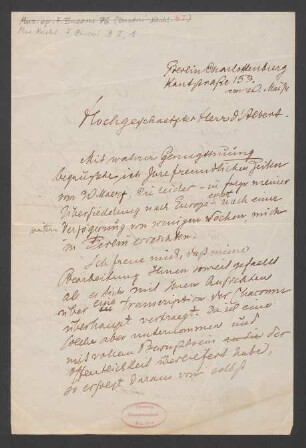 Mus. Nachl. F. Busoni B I, 1
Berlin-Charlottenburg
Kantstraße 153.
am 20. Mai
Hochgeschaetzter Herr d'Albert.
Mit wahrer Genugthuung
begrüsste ich Ihre freundlichen Zeilen
vom 30 Maerz, die leider - in folge meiner
Übersiedlung nach Europa - erst nach einer
weitern Verzögerung von wenigen Wochen mich
in Berlin erreichten.
Ich freue mich, daß meine
Bearbeitung Ihnen soweit gefallen
als es sich mit Ihren Ansichten
über eine Transcription der Chaconne
überhaupt vertraegt. Da ich eine
solche aber unternommen und
mit vollem Bewusstsein der
Öffentlichkeit überliefert habe,
so erfolgt daraus von selbst